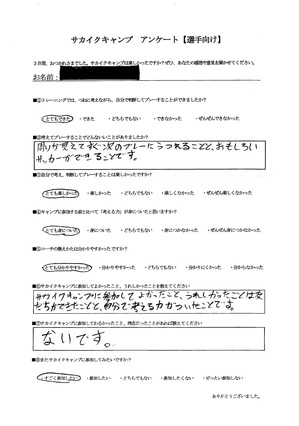 サカイクキャンプ アンケート【選手向け】
3日間、おつかれさまでした。サカイクキャンプは楽しかったですか？ぜひ、あなたの感想や意見を聞かせてください。
お名前：
■①トレーニングでは、つねに考えながら、自分で判断してプレーすることができましたか？
・とてもできた ・できた ・どちらでもない ・できなかった ・ぜんぜんできなかった
■②考えてプレーすることでどんないいことがありましたか？
周りが見えてすぐ次のプレーにうつれることと、おもしろい
サッカーができることです。
■③自分で考え、判断してプレーすることは楽しかったですか？
・とても楽しかった ・楽しかった ・どちらでもない ・楽しくなかった ・ぜんぜん楽しくなかった
■④キャンプに参加する前と比べて「考える力」が身についたと思いますか？
・とても身についた ・身についた ・どちらでもない ・身につかなかった ・ぜんぜん身につかなかった
■⑤コーチの教えかたは分かりやすかったですか？
・とても分かりやすかった ・分かりやすかった ・どちらでもない ・分かりにくかった ・分からなかった
■⑥サカイクキャンプに参加してよかったこと、うれしかったことを教えてください
サカイクキャンプに参加してよかったこと、うれしかったことは友
だちができたことと、自分で考える力がついたことです。
■⑦サカイクキャンプに参加してわるかったこと、残念だったことがあれば教えてください
ないです。
■⑧またサカイクキャンプに参加してみたいですか？
・すごく参加したい ・参加したい ・どちらでもない ・参加したくない ・ぜったい参加しない
ありがとうございました。